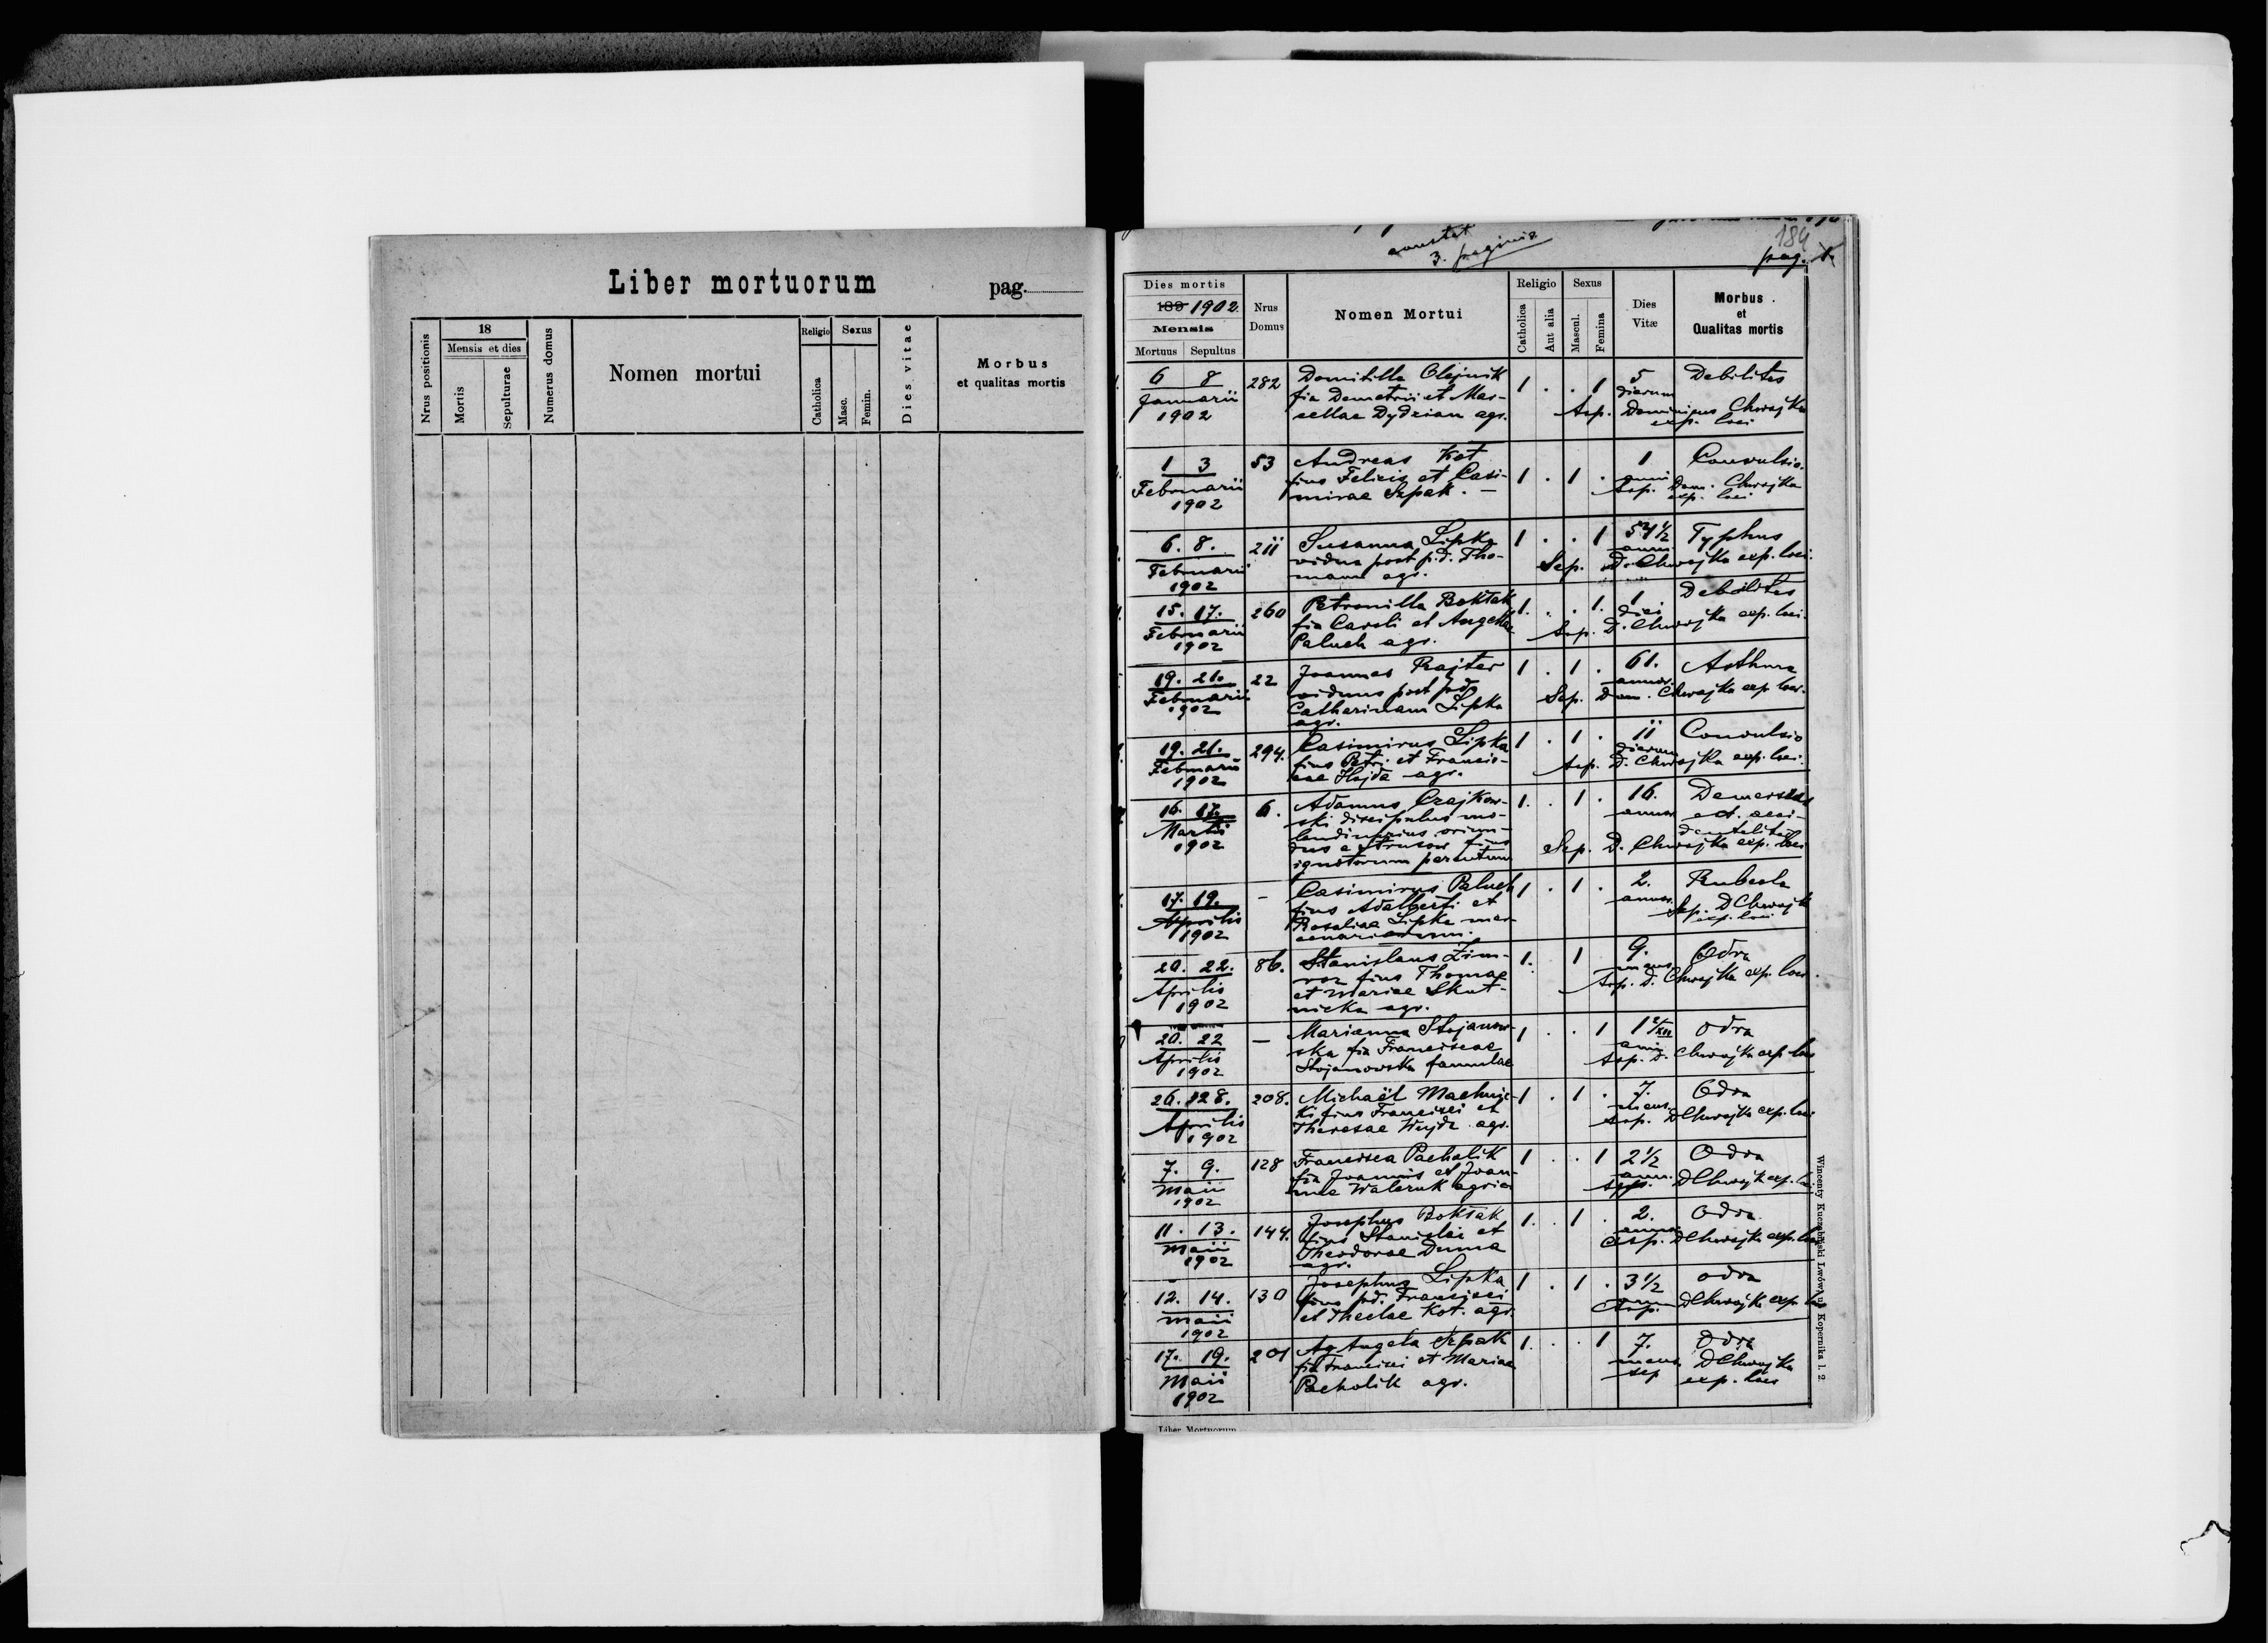 Liber mortuorum
pag.
Nrus positionis
18
Mensis et dies
Mortis
Sepulturae
Numerus domus
Nomen mortui
Religio
Catholica
Sexus
Masc.
Femin.
Dies vitae
Morbus
et qualitas mortis
constat
3. paginis
184
pag.
Dies mortis
189 1902.
Mensis
Mortuus
Sepultus
Nrus
Domus
Nomen Mortui
Religio
Catholica
Aut alia
Sexus
Mascul.
Femina
Dies
Vitæ
Morbus
et
Qualitas mortis
6 8 282 Domitilla Olejnik 1 . . 1 5 Debilitas
Januarii fia Demetrii et Mar- dierum
1902 cellae Dydzian agr. Asp. Dominicus Chwojka
exp. loci
1 3 53 Andreas Kot 1 . 1 . 1 Convulsio
Februarii fius Felicis et Casi- anni
1902 mirae Szpak. Asp. Dom. Chwojka
exp. loci
6. 8. 211 Susanna Lipka 1 . . 1 54 1/2 Typhus
Februarii vidua post p.d. Tho- ann
1902 mam agr. Sep. D. Chwojka exp. loci.
15. 17. 260 Petronilla Boktak 1. . . 1. 1 Debilitas
Februarii fia Caroli et Angelae diei
1902 Paluch agr. Asp. D. Chwojka exp. loci.
19. 21. 22 Joannes Rajter 1 . 1 . 61. Asthma
Februarii viduus post pd annor.
1902 Catharinam Lipka Sep. Dom. Chwojka exp loci.
agr.
19. 21. 294. Casimirus Lipka 1 . 1 . 11 Convulsio
Februarii fius Petri et Francis- dierum
1902 cae Hajda agr. Asp. D. Chwojka exp. loci.
16. 17. 6. Adamus Czajkow- 1. . 1 . 16. Demersus
Martii ski discipulus mo- annor est. acci-
1902 lendinarius oriun- dentaliter
dus fius Sep. D. Chwojka exp. loci
ignotorum parentum
17. 19. - Casimirus Paluch 1 . 1 . 2. Rubeola
Aprilis fius Adalberti et annor.
1902 Rosaliae Lipka mer- Sep. D Chwojk
cenariorum. exp. loci
20. 22. 86. Stanislaus Zim- 1. . 1 9. Odra
Aprilis fius Thomae mens.
1902 et Mariae Skot- Asp. D. Chwojka exp. loci.
nicka agr.
20. 22 - Marianna Stojanow- 1 . . 1 1 2/XII Odra
Aprilis ska fia Franciscae anni
1902 Stojanowska famulae Asp. D. Chwojka exp loci
26. 28. 208. Michaël Machnic- 1 . 1 . 7. Odra
Aprilis ki fius Francisci et mens.
1902 Theresae Wujda agr. Asp. D Chwojka exp. loci
7. 9. 128 Francisca Pacholik 1 . . 1 2 1/2 Odra
Maii fia Joannis et Joan- ann.
1902 nae Waleruk D Chwojk exp. loci
11. 13. 144. Josephus Boktak 1. . 1 . 2. Odra
Maii fius Stanislai et annor
1902 Theodorae Duma Asp. D Chwojka exp. loci
agr.
12. 14. 130 Josephus Lipka 1 . 1 . 3 1/2 odra
Maii fius pd. Francisci
1902 et Theclae Kot. agr. Asp. D Chwojka exp. loci
17. 19. 201 Ag Angela Szpak 1. . . 1 7. Odra
Maii fia Francisci et Mariae mens D Chwojka
1902 Pacholik agr. Sep exp. loci
Liber Mortuorum
Wincenty Kuczabiński Lwów ul. Kopernika l. 2.